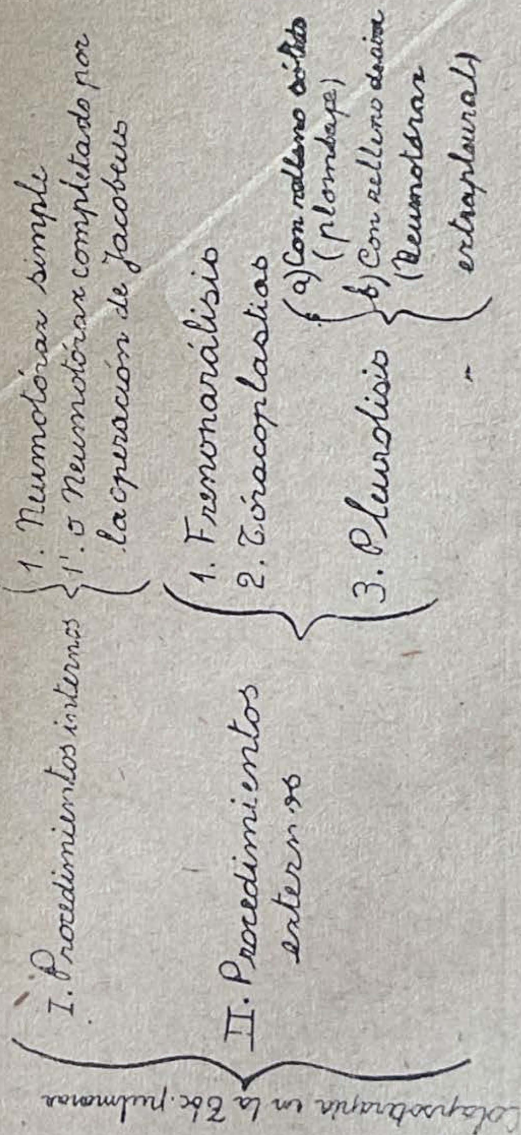 Colapsoterapia en la Tbc. pulmonar
I. Procedimientos internos
1. Neumotórax simple
1'. o Neumotórax completado por
la operación de Jacobeus
II. Procedimientos
externos
1. Frenoparálisis
2. Toracoplastias
3. Pleurolisis
a) Con relleno sólido
(plombage)
b) Con relleno de aire
(Neumotórax
extrapleural)